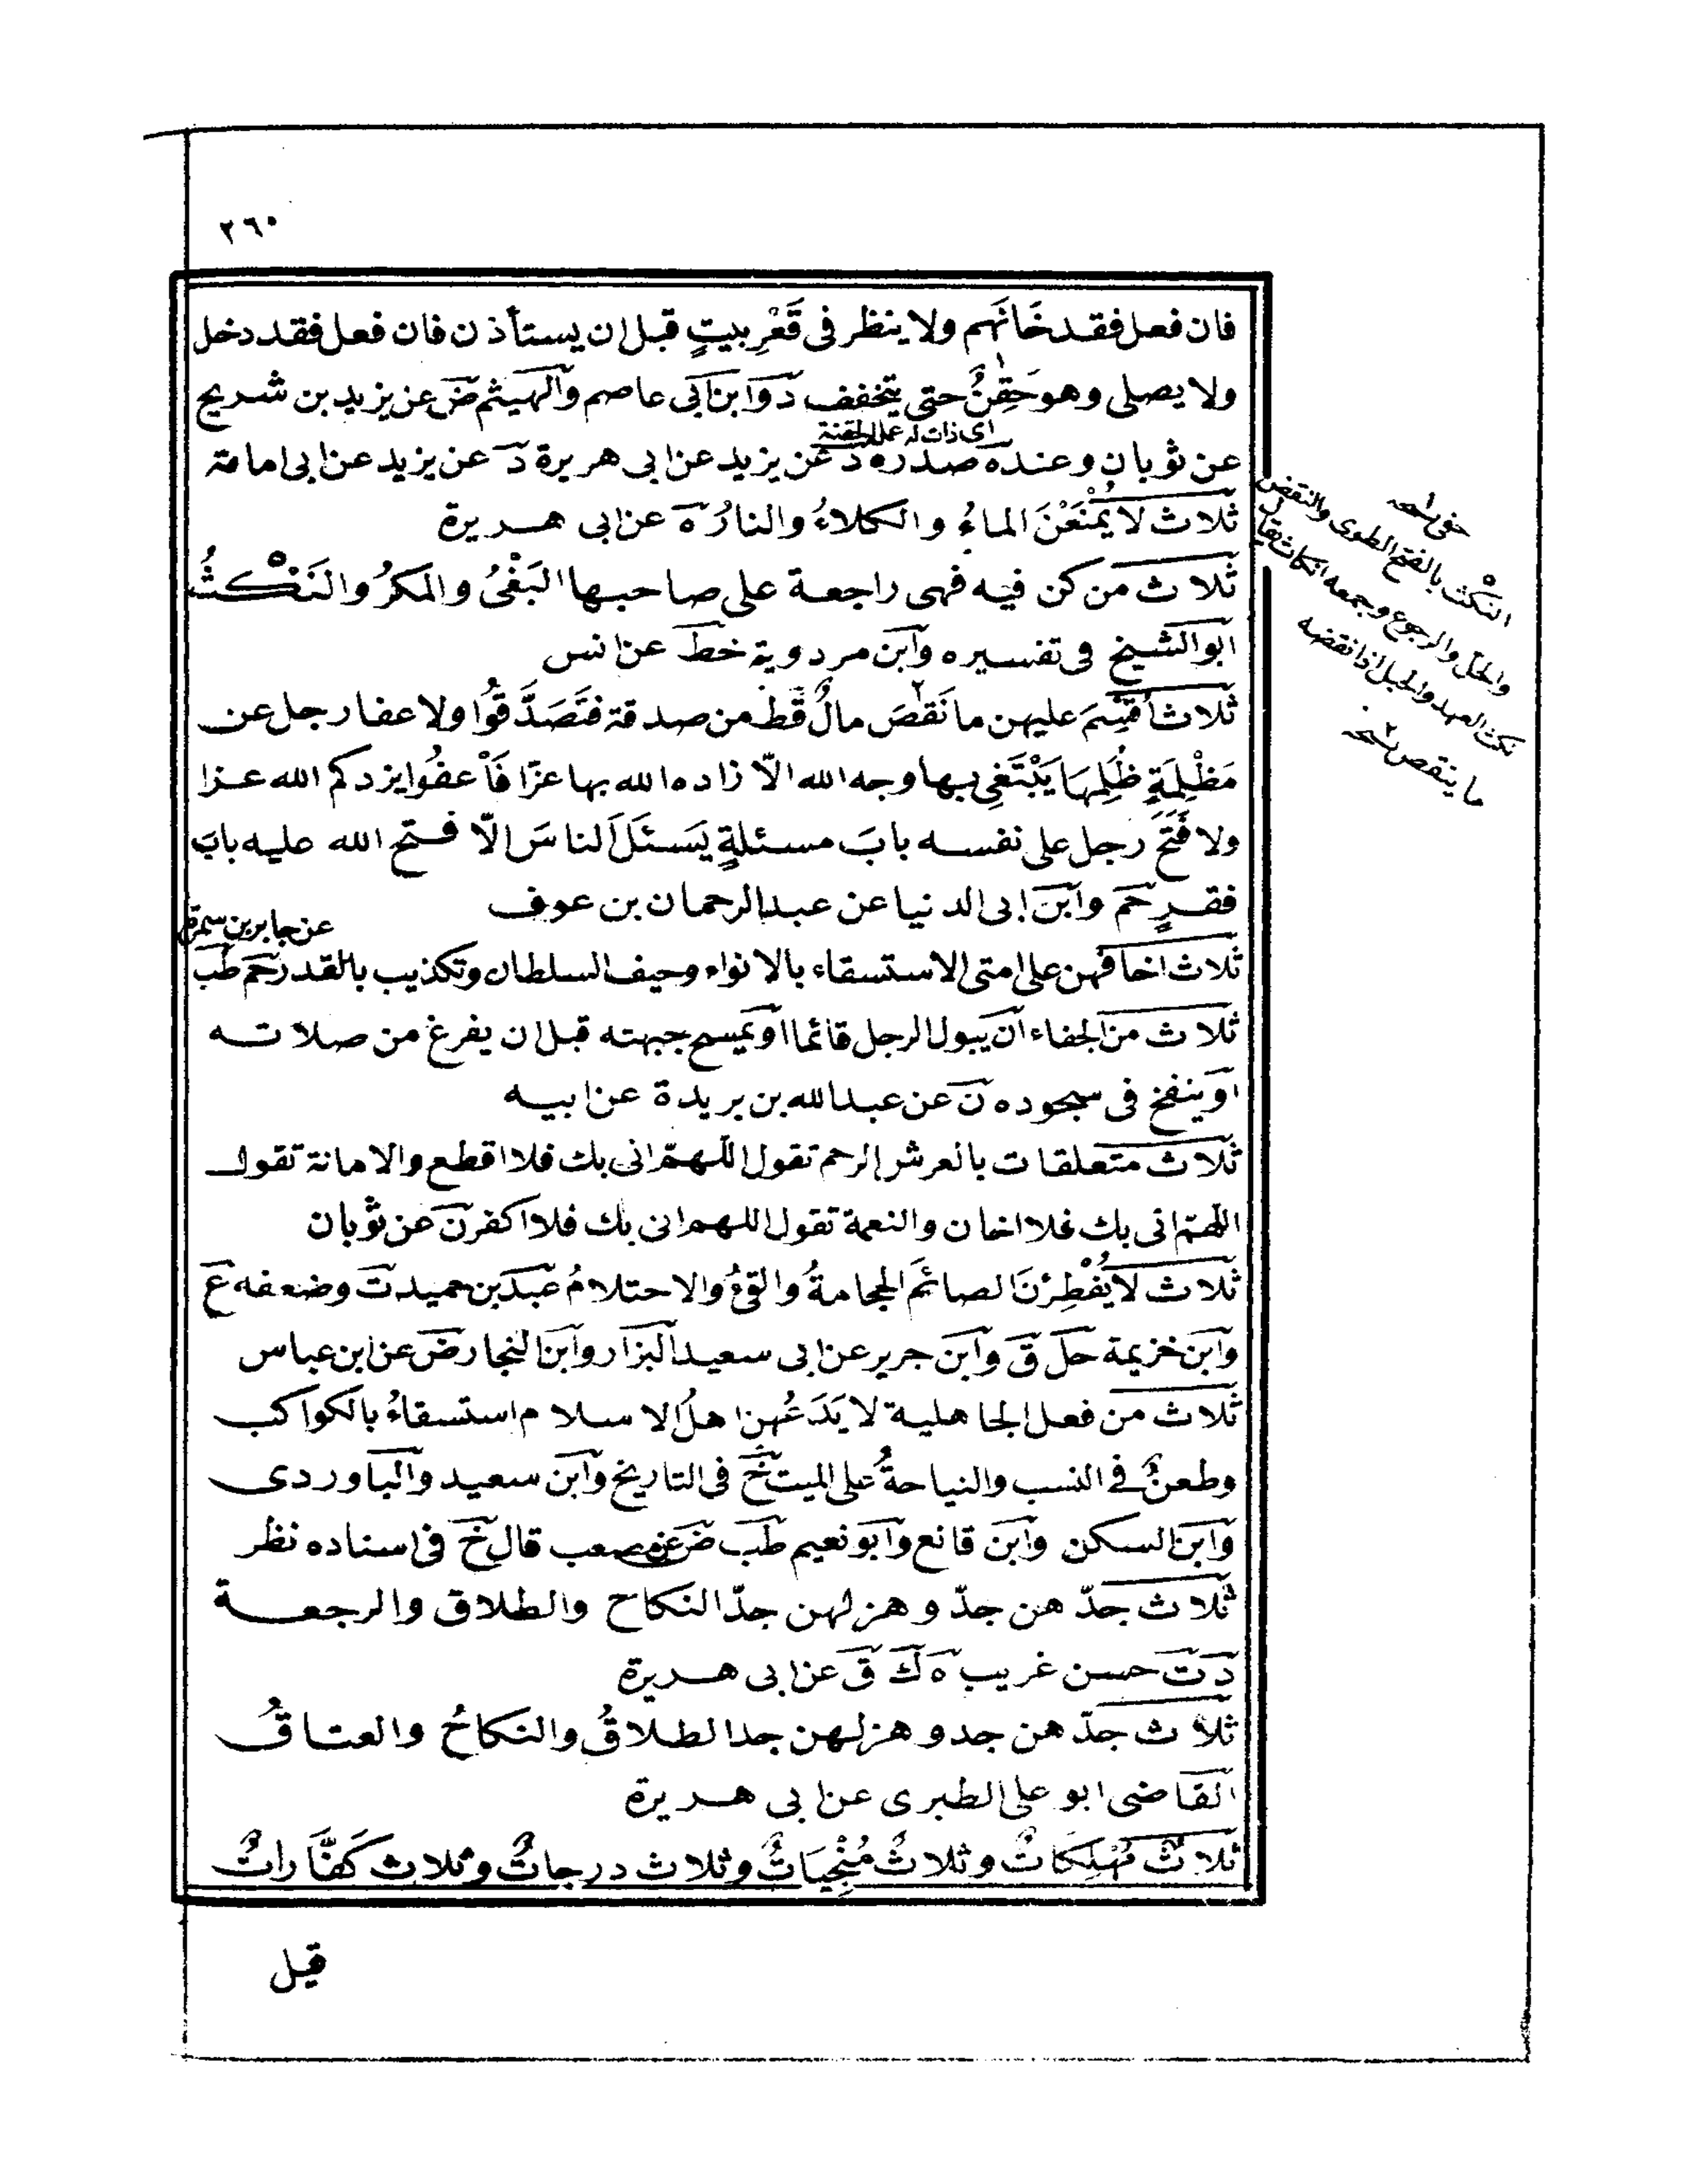 ٢٦٠
فان فعل فقد خَانَهم ولا ينظر فى قَعْرِ بيتٍ قبل ان يستأذن فان فعل فقد دخل
ولا يصلى وهو حَقِنٌ حتى يتخفف د وابن ابى عاصم والهيثم ض عن يزيد بن شريح
عن ثوبان وعنده صدره د عن يزيد عن ابى هريرة د عن يزيد عن ابى امامة
ثلاث لا يُمْنَعْنَ الماءُ والكلاءُ والنارُ ه عن ابى هريرة
ثلاث من كن فيه فهى راجعة على صاحبها البَغْىُ والمكرُ والنَكْثُ
ابو الشيخ فى تفسيره وابن مردوية خط عن انس
ثلاث اُقْسِمَ عليهن ما نَقَصَ مالٌ قَطُّ من صدقة فتَصَدَّقُوا ولا عفا رجل عن
مَظْلِمَةٍ ظُلِمَهَا يَبْتَغِى بها وجه الله الّا زاده الله بها عزّا فَاْعفُوا يزدكم الله عزا
ولا فَتَحَ رجل على نفسه بابَ مسئلةٍ يَسئَلُ الناسَ الّا فتح الله عليه بابَ
فقرٍ حم وابن ابى الدنيا عن عبد الرحمان بن عوف
عن جابر بن سمرة
ثلاث اخافهن على امتى الاستسقاء بالانواء وحيف السلطان وتكذيب بالقدر حم طب
ثلاث من الجفاء ان يبول الرجل قائما او يمسح جبهته قبل ان يفرغ من صلاته
او ينفخ فى سجوده ن عن عبد الله بن بريدة عن ابيه
ثلاث متعلقات بالعرش الرحم تقول اللهمّ انى بك فلا اقطع والامانة تقول
اللهمّ انى بك فلا اخان والنعمة تقول اللهم انى بك فلا اكفر ن عن ثوبان
ثلاث لا يُفْطِرْنَ الصائم الحجامةُ والقئُ والاحتلامُ عبد بن حميد ت وضعفه ع
وابن خزيمة حل ق وابن جرير عن ابى سعيد البزار وابن النجار ض عن ابن عباس
ثلاث من فعل الجاهلية لا يَدَعُهن اهلُ الاسلام استسقاءُ بالكواكب
وطعنٌ فى النسب والنياحةُ على الميت خ فى التاريخ وابن سعيد والباوردى
وابن السكن وابن قانع وابو نعيم طب ض عن مصعب قال خ فى اسناده نظر
ثلاث جدّ هن جدّ وهزلهن جدّ النكاح والطلاق والرجعة
د ت حسن غريب ه ك ق عن ابى هريرة
ثلاث جدّ هن جد وهزلهن جد الطلاقُ والنكاحُ والعتاقُ
القاضى ابو على الطبرى عن ابى هريرة
ثلاثٌ مُهْلِكاتٌ وثلاثٌ مُنْجِيَاتٌ وثلاث درجاتٌ وثلاث كَفَّاراتٌ
قيل
النكث بالفتح الطوى والنقض
والحل والرجوع وجمعه انكاث يقال
نكث العهد والحبل اذا نقضه
ما ينقص نسخه